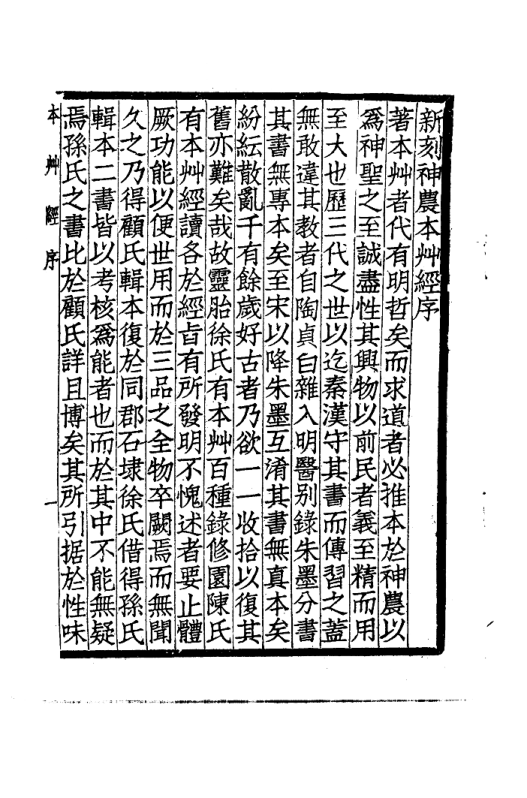 新刻神農本艸經序
著本艸者代有明哲矣而求道者必推本於神農以
爲神聖之至誠盡性其興物以前民者義至精而用
至大也歷三代之世以迄秦漢守其書而傳習之蓋
無敢違其教者自陶貞白雜入明醫別錄朱墨分書
其書無專本矣至宋以降朱墨互淆其書無真本矣
紛紜散亂千有餘歲好古者乃欲一一收拾以復其
舊亦難矣哉故靈胎徐氏有本艸百種錄修園陳氏
有本艸經讀各於經旨有所發明不愧述者要止體
厥功能以便世用而於三品之全物卒闕焉而無聞
久之乃得顧氏輯本復於同郡石埭徐氏借得孫氏
輯本二書皆以考核爲能者也而於其中不能無疑
焉孫氏之書比於顧氏詳且博矣其所引据於性味
本艸經序
一